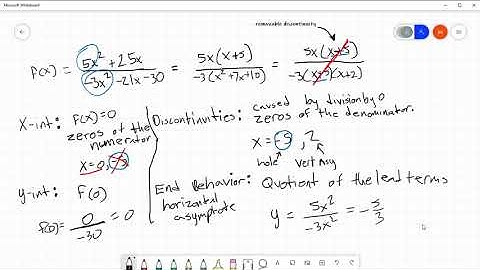 Microsoft Whiteboard
removable discontinuity
f(x) = 5x² + 25x / -3x² - 21x - 30 = 5x(x+5) / -3(x²+7x+10) = 5x(x+5) / -3(x+5)(x+2)
X-int: f(x)=0
zeros of the
numerator
x = 0, -5
y-int: f(0)
f(0) = 0 / -30 = 0
Discontinuities: caused by division by 0
zeros of the denominator.
x = -5, 2
hole vert Asy
End Behavior: Quotient of the lead terms
horizontal
asymptote
y = 5x² / -3x² = -5/3